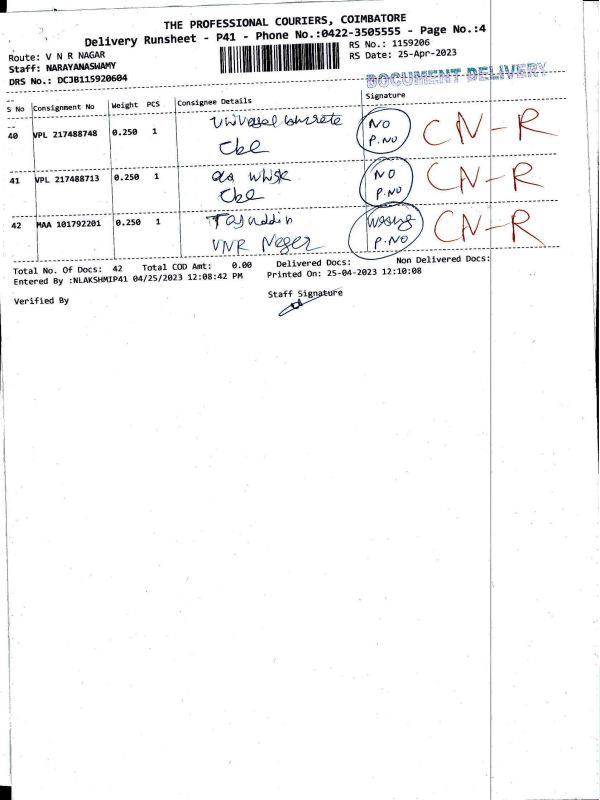 THE PROFESSIONAL COURIERS, COIMBATORE
Delivery Runsheet - P41 - Phone No.:0422-3505555 - Page No.:4
Route: V N R NAGAR
RS No.: 1159206
Staff: NARAYANASWAMY
RS Date: 25-Apr-2023
DRS No.: DCJB115920604
DOCUMENT DELIVERY
S No Consignment No Weight PCS Consignee Details Signature
40 VPL 217488748 0.250 1 NO CN-R
Cbe P.NO
41 VPL 217488713 0.250 1 NO CN-R
Cbe P.NO
42 MAA 101792201 0.250 1 Tajuddin Wrong CN-R
VNR Neger P.NO
Total No. Of Docs: 42 Total COD Amt: 0.00 Delivered Docs: Non Delivered Docs:
Entered By :NLAKSHMIP41 04/25/2023 12:08:42 PM Printed On: 25-04-2023 12:10:08
Verified By Staff Signature